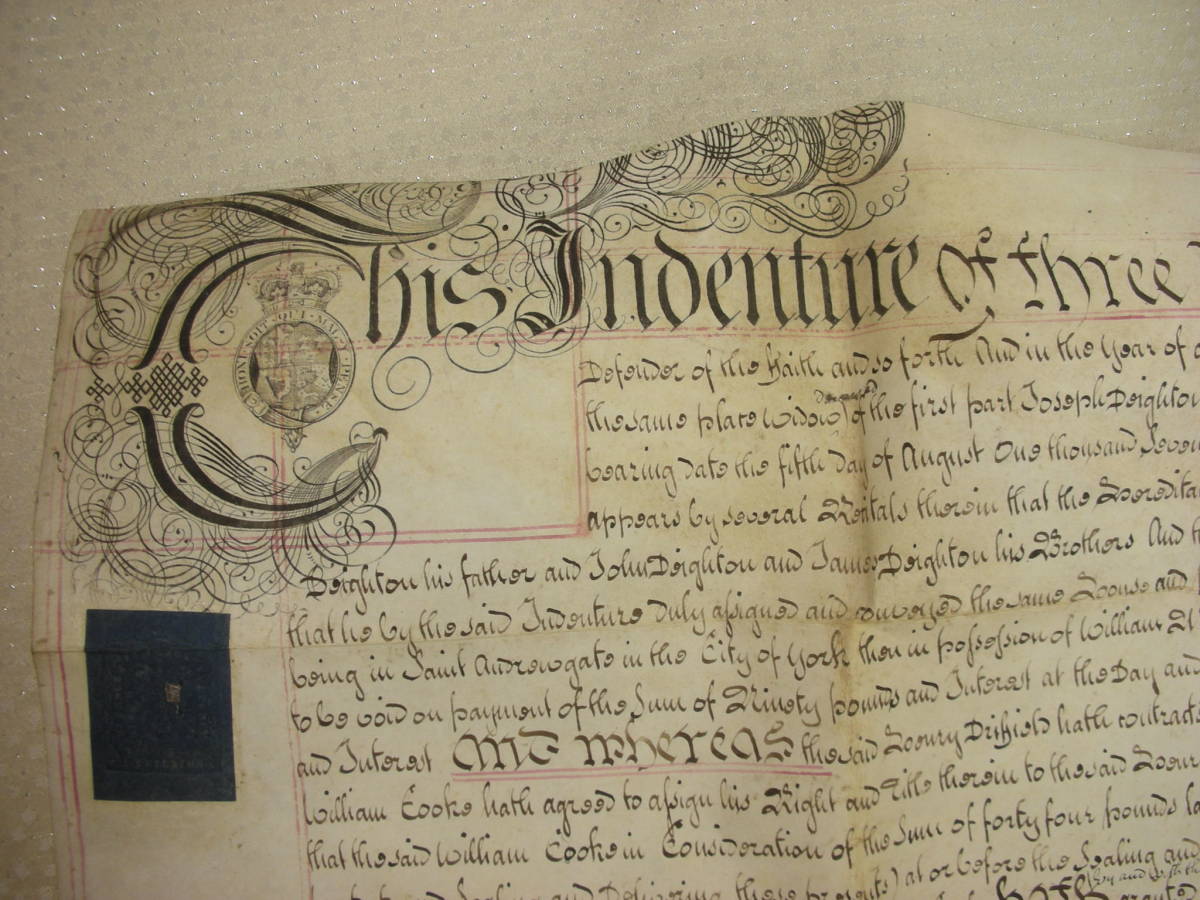 This Indenture of three
HONI SOIT QUI MAL Y PENSE
Defender of the Faith and so forth And in the Year of
the same place Widow of the first part Joseph Deighton
bearing date the fifth day of August One thousand Seven
appears by several Recitals therein that the Heredita
Deighton his father and John Deighton and James Deighton his Brothers And
that he by the said Indenture duly assigned and conveyed the same House and
being in Saint Andrewgate in the City of York then in possession of William
to be void on payment of the Sum of Ninety pounds and Interest at the Day and
and Interest And whereas the said Henry Driffield hath contract
William Cooke hath agreed to assign his Right and Title therein to the said Hen
that the said William Cooke in Consideration of the Sum of forty four pounds
Sealing and Delivering these presents) at or before the Sealing and
by and with
Hath granted